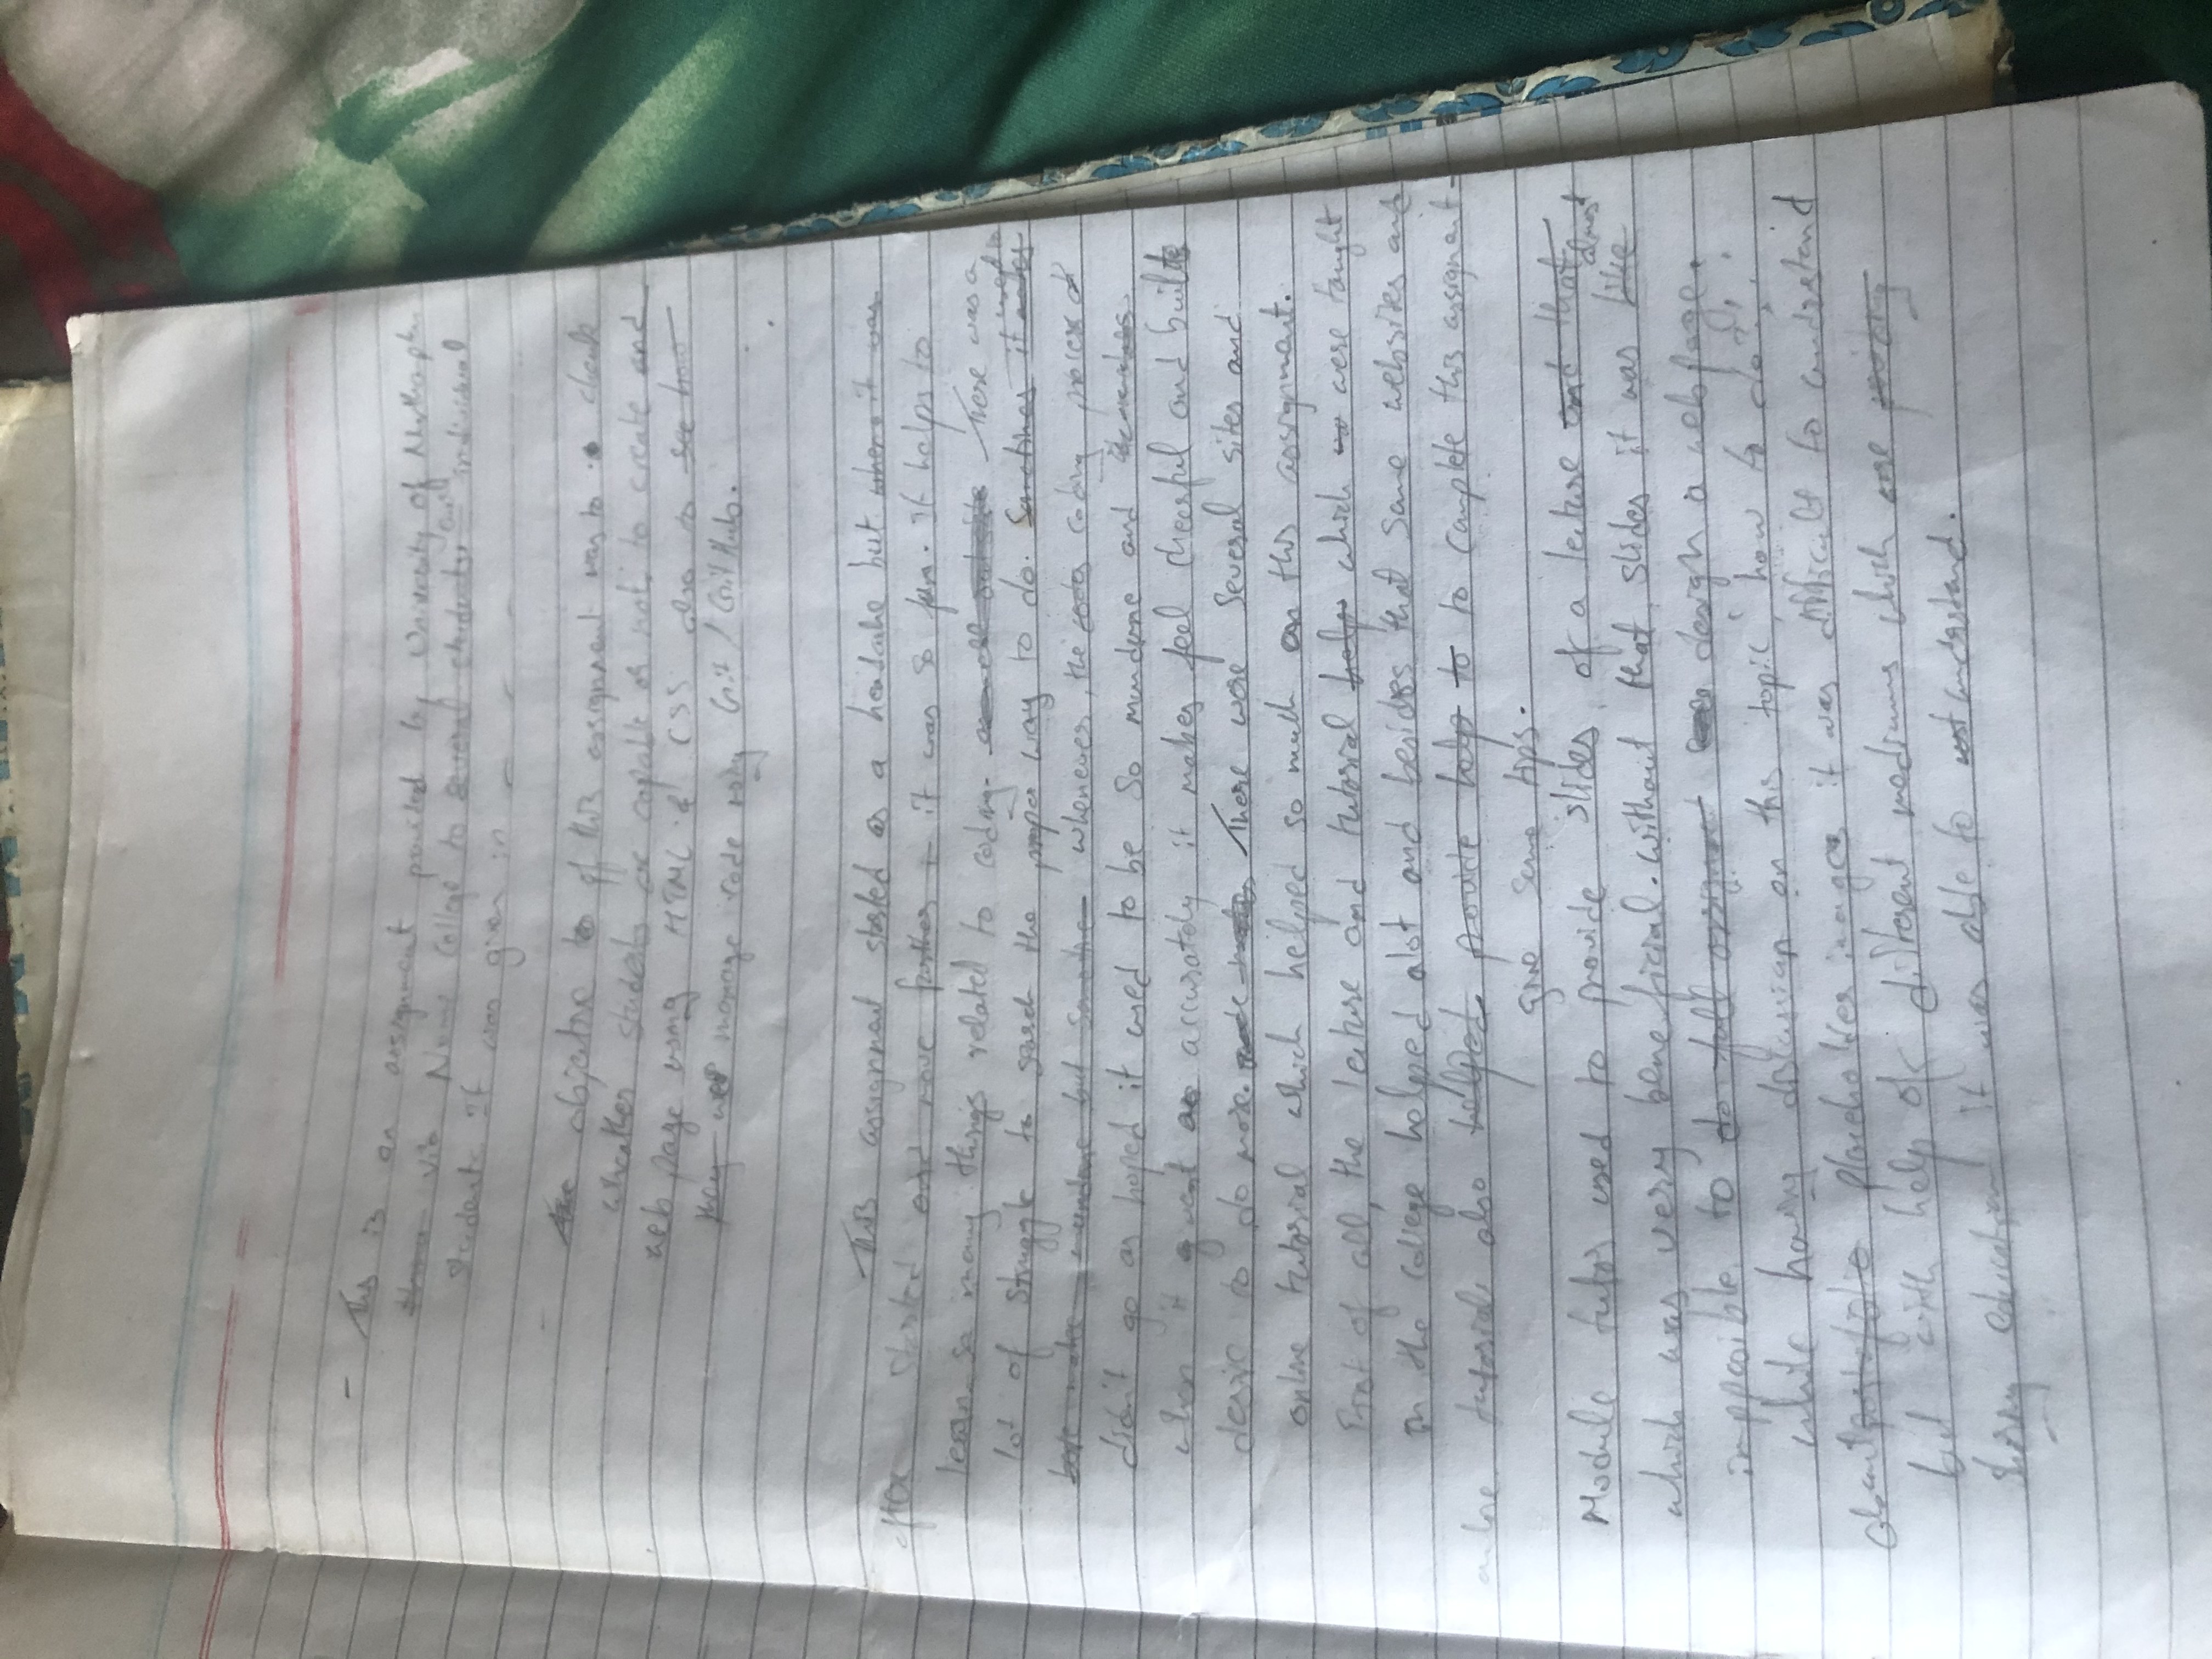 - This is an assignment provided by University of Northampton
via Name College to several students individual
students. It was given in - - -
- The objective to of this assignment was to check
wheather students are capable or not to create and
web page using HTML & CSS also to see how
they manage code using Git / GitHub.
This assignment started as a headache but when it was
after started and move further it was so fun. It helps to
learn so many things related to coding. There was a
lot of struggle to search the proper way to do. Sometimes it used to makes
makes mundane but sometime whenever, the codes coding process
didn't go as hoped it used to be so mundane and
when it went as accurately it makes feel cheerful and builds
desire to do more. There were several sites and
online tutorial which helped so much on this assignment.
First of all, the lecture and tutorial helps which were taught
in the college helped alot and besides that some websites and
online tutorials also helped provide help to to complete this assignment-
give some tips.
Module tutor used to provide slides of a lecture and that
which was very beneficial. without that slides it was like almost
imppossible to do full assignment design a webpage.
while having discussion on this topic 'how to do?'
about portofolio placeholder images it was difficult to understand
but with help of different mediums which are providing
sharing education it was able to understand.